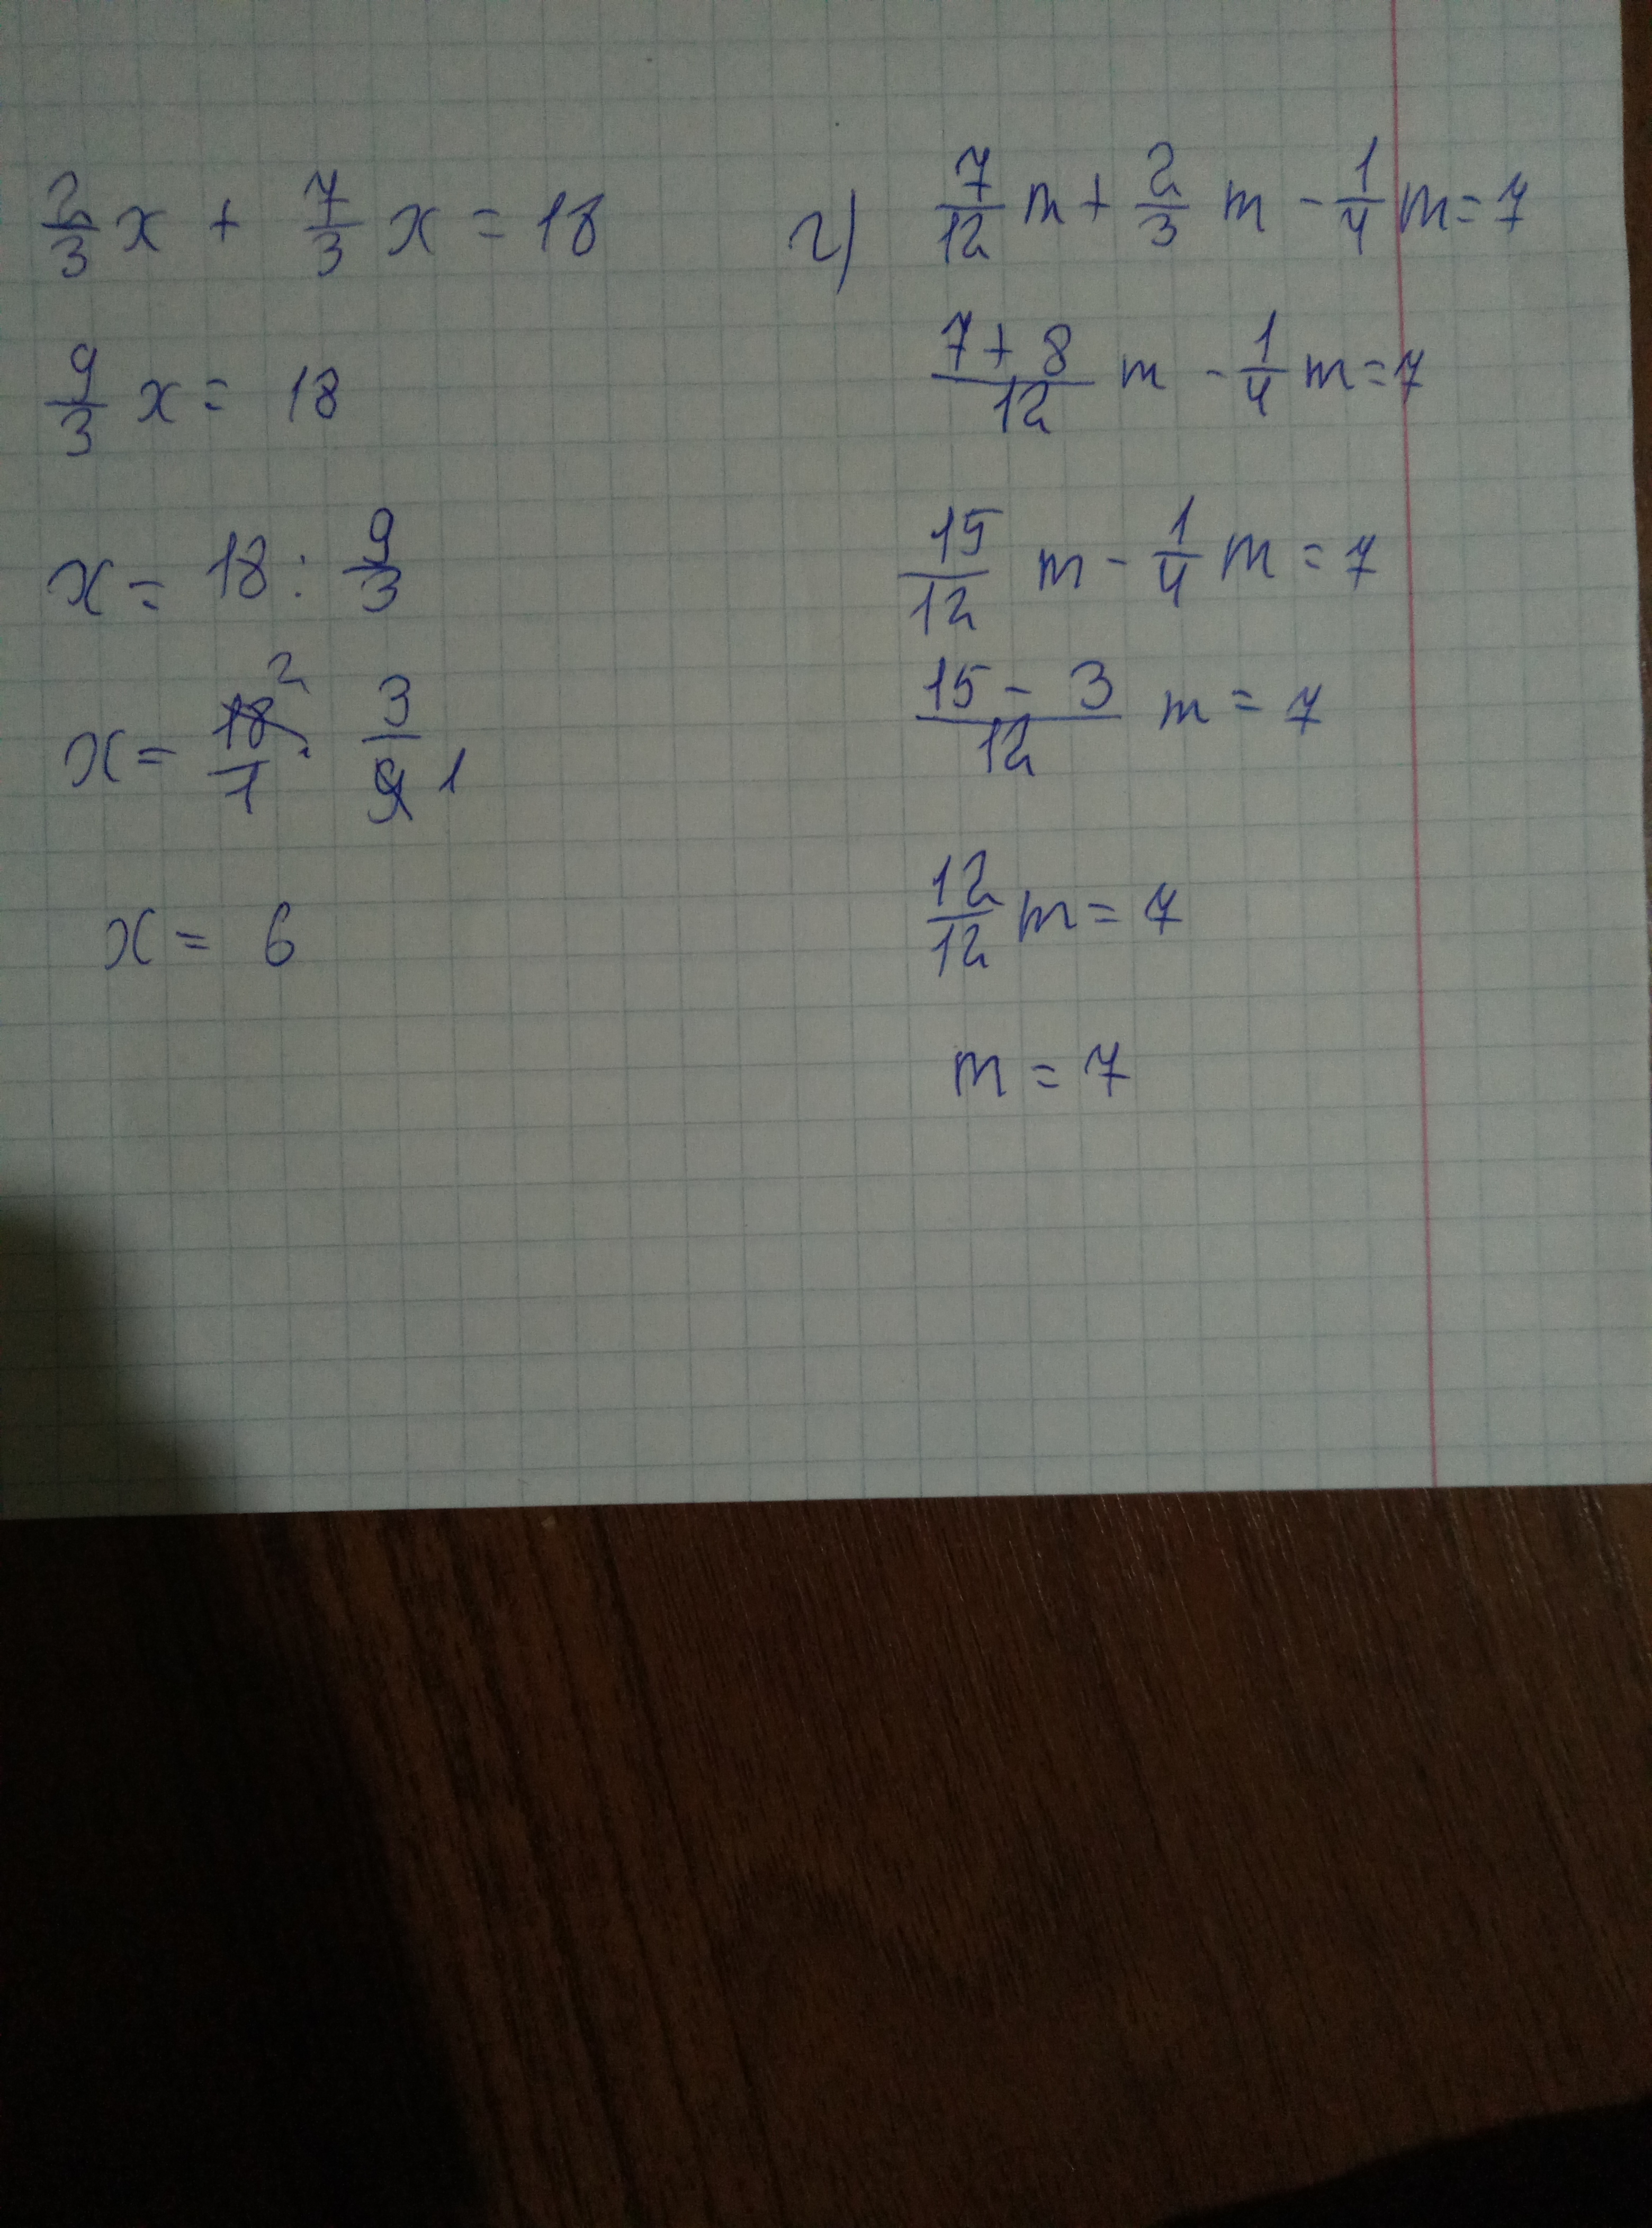 2/3 x + 7/3 x = 18
9/3 x = 18
x = 18 : 9/3
x = 18 2/1 · 3/9 1
x = 6
г) 7/12 m + 2/3 m - 1/4 m = 7
7 + 8/12 m - 1/4 m = 7
15/12 m - 1/4 m = 7
15 - 3/12 m = 7
12/12 m = 7
m = 7